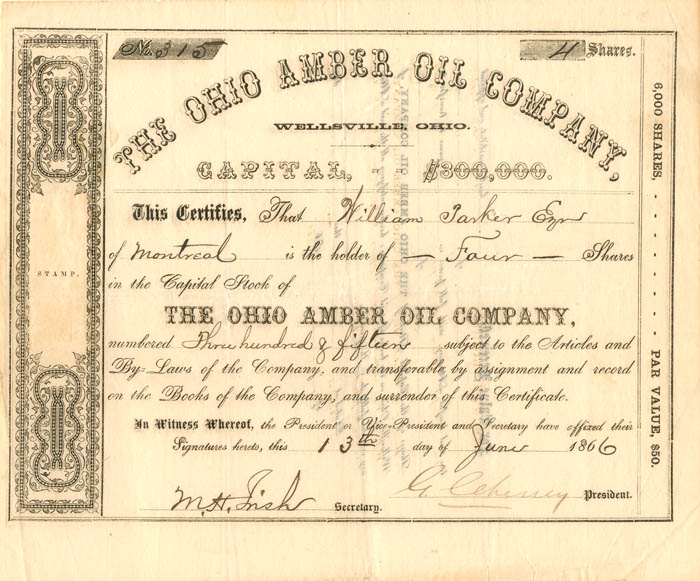 No. 315
4 Shares.
THE OHIO AMBER OIL COMPANY,
WELLSVILLE, OHIO.
CAPITAL, - $300,000.
This Certifies, That William Parker Esqr
of Montreal is the holder of — Four — Shares
in the Capital Stock of
THE OHIO AMBER OIL COMPANY,
numbered Three hundred & fifteen subject to the Articles and
By-Laws of the Company, and transferable by assignment and record
on the Books of the Company, and surrender of this Certificate.
In Witness Whereof, the President or Vice-President and Secretary have affixed their
Signatures hereto, this 13th day of June 1866
M. H. Fish Secretary.
G. President.
STAMP.
6,000 SHARES, - - - - - - - PAR VALUE, $50.